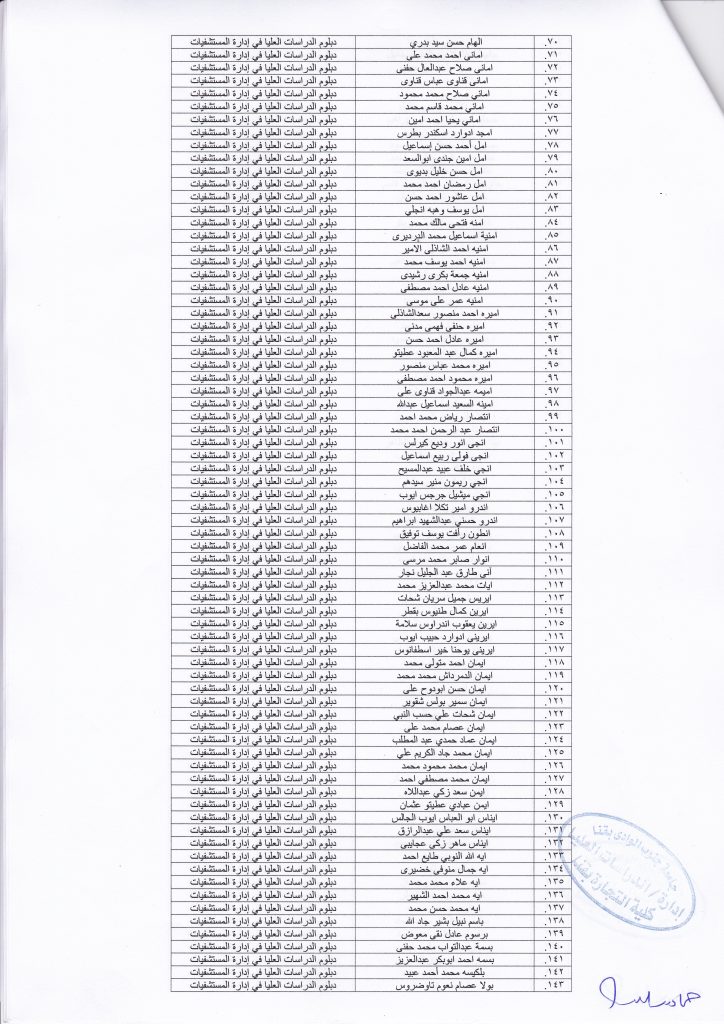 ٧٠. الهام حسن سيد بدري دبلوم الدراسات العليا في إدارة المستشفيات
٧١. اماني احمد محمد على دبلوم الدراسات العليا في إدارة المستشفيات
٧٢. امانى صلاح عبدالعال حفنى دبلوم الدراسات العليا في إدارة المستشفيات
٧٣. امانى قناوى عباس قناوى دبلوم الدراسات العليا في إدارة المستشفيات
٧٤. اماني صلاح محمد محمود دبلوم الدراسات العليا في إدارة المستشفيات
٧٥. اماني محمد قاسم محمد دبلوم الدراسات العليا في إدارة المستشفيات
٧٦. اماني يحيا احمد امين دبلوم الدراسات العليا في إدارة المستشفيات
٧٧. امجد ادوارد اسكندر بطرس دبلوم الدراسات العليا في إدارة المستشفيات
٧٨. امل أحمد حسن إسماعيل دبلوم الدراسات العليا في إدارة المستشفيات
٧٩. امل امين جندى ابوالسعد دبلوم الدراسات العليا في إدارة المستشفيات
٨٠. امل حسن خليل بديوى دبلوم الدراسات العليا في إدارة المستشفيات
٨١. امل رمضان احمد محمد دبلوم الدراسات العليا في إدارة المستشفيات
٨٢. امل عاشور احمد حسن دبلوم الدراسات العليا في إدارة المستشفيات
٨٣. امل يوسف وهبه انجلي دبلوم الدراسات العليا في إدارة المستشفيات
٨٤. امنه فتحى مالك محمد دبلوم الدراسات العليا في إدارة المستشفيات
٨٥. امنية اسماعيل محمد الدرديرى دبلوم الدراسات العليا في إدارة المستشفيات
٨٦. امنيه احمد الشاذلى الامير دبلوم الدراسات العليا في إدارة المستشفيات
٨٧. امنيه احمد يوسف محمد دبلوم الدراسات العليا في إدارة المستشفيات
٨٨. امنيه جمعة بكرى رشيدى دبلوم الدراسات العليا في إدارة المستشفيات
٨٩. امنيه عادل احمد مصطفى دبلوم الدراسات العليا في إدارة المستشفيات
٩٠. امنيه عمر على موسى دبلوم الدراسات العليا في إدارة المستشفيات
٩١. اميره احمد منصور سعدالشاذلى دبلوم الدراسات العليا في إدارة المستشفيات
٩٢. اميره حنفى فهمى مدنى دبلوم الدراسات العليا في إدارة المستشفيات
٩٣. اميره عادل احمد حسن دبلوم الدراسات العليا في إدارة المستشفيات
٩٤. اميره كمال عبد المعبود عطيتو دبلوم الدراسات العليا في إدارة المستشفيات
٩٥. اميره محمد عباس منصور دبلوم الدراسات العليا في إدارة المستشفيات
٩٦. اميره محمود احمد مصطفى دبلوم الدراسات العليا في إدارة المستشفيات
٩٧. اميمه عبدالجواد قناوى على دبلوم الدراسات العليا في إدارة المستشفيات
٩٨. امينه السعيد اسماعيل عبدالله دبلوم الدراسات العليا في إدارة المستشفيات
٩٩. انتصار رياض محمد احمد دبلوم الدراسات العليا في إدارة المستشفيات
١٠٠. انتصار عبد الرحمن احمد محمد دبلوم الدراسات العليا في إدارة المستشفيات
١٠١. انجى انور وديع كيرلس دبلوم الدراسات العليا في إدارة المستشفيات
١٠٢. انجى فولى ربيع اسماعيل دبلوم الدراسات العليا في إدارة المستشفيات
١٠٣. انجي خلف عبيد عبدالمسيح دبلوم الدراسات العليا في إدارة المستشفيات
١٠٤. انجي ريمون منير سيدهم دبلوم الدراسات العليا في إدارة المستشفيات
١٠٥. انجي ميشيل جرجس ايوب دبلوم الدراسات العليا في إدارة المستشفيات
١٠٦. اندرو امير تكلا اغابيوس دبلوم الدراسات العليا في إدارة المستشفيات
١٠٧. اندرو حسني عبدالشهيد ابراهيم دبلوم الدراسات العليا في إدارة المستشفيات
١٠٨. انطون رأفت يوسف توفيق دبلوم الدراسات العليا في إدارة المستشفيات
١٠٩. انعام عمر محمد الفاضل دبلوم الدراسات العليا في إدارة المستشفيات
١١٠. انوار صابر محمد مرسى دبلوم الدراسات العليا في إدارة المستشفيات
١١١. آنى طارق عبد الجليل نجار دبلوم الدراسات العليا في إدارة المستشفيات
١١٢. ايات محمد عبدالعزيز محمد دبلوم الدراسات العليا في إدارة المستشفيات
١١٣. ايريس جميل سريان شحات دبلوم الدراسات العليا في إدارة المستشفيات
١١٤. ايرين كمال طنيوس بقطر دبلوم الدراسات العليا في إدارة المستشفيات
١١٥. ايرين يعقوب اندراوس سلامة دبلوم الدراسات العليا في إدارة المستشفيات
١١٦. ايرينى ادوارد حبيب ايوب دبلوم الدراسات العليا في إدارة المستشفيات
١١٧. ايرينى يوحنا خير اسطفانوس دبلوم الدراسات العليا في إدارة المستشفيات
١١٨. ايمان احمد متولى محمد دبلوم الدراسات العليا في إدارة المستشفيات
١١٩. ايمان الدمرداش محمد محمد دبلوم الدراسات العليا في إدارة المستشفيات
١٢٠. ايمان حسن ابودوح على دبلوم الدراسات العليا في إدارة المستشفيات
١٢١. ايمان سمير بولس شقوير دبلوم الدراسات العليا في إدارة المستشفيات
١٢٢. ايمان شحات علي حسب النبي دبلوم الدراسات العليا في إدارة المستشفيات
١٢٣. ايمان عصام محمد على دبلوم الدراسات العليا في إدارة المستشفيات
١٢٤. ايمان عماد حمدي عبد المطلب دبلوم الدراسات العليا في إدارة المستشفيات
١٢٥. ايمان محمد جاد الكريم علي دبلوم الدراسات العليا في إدارة المستشفيات
١٢٦. ايمان محمد محمود محمد دبلوم الدراسات العليا في إدارة المستشفيات
١٢٧. ايمان محمد مصطفي احمد دبلوم الدراسات العليا في إدارة المستشفيات
١٢٨. ايمن سعد زكي عبداللاه دبلوم الدراسات العليا في إدارة المستشفيات
١٢٩. ايمن عبادي عطيتو عثمان دبلوم الدراسات العليا في إدارة المستشفيات
١٣٠. ايناس ابو العباس ايوب الجالس دبلوم الدراسات العليا في إدارة المستشفيات
١٣١. ايناس سعد علي عبدالرازق دبلوم الدراسات العليا في إدارة المستشفيات
١٣٢. ايناس ماهر زكى عجايبى دبلوم الدراسات العليا في إدارة المستشفيات
١٣٣. ايه الله النوبي طايع احمد دبلوم الدراسات العليا في إدارة المستشفيات
١٣٤. ايه جمال منوفى خضيرى دبلوم الدراسات العليا في إدارة المستشفيات
١٣٥. ايه علاء محمد محمد دبلوم الدراسات العليا في إدارة المستشفيات
١٣٦. ايه محمد احمد الشهير دبلوم الدراسات العليا في إدارة المستشفيات
١٣٧. ايه محمد حسن محمد دبلوم الدراسات العليا في إدارة المستشفيات
١٣٨. باسم نبيل بشير جاد الله دبلوم الدراسات العليا في إدارة المستشفيات
١٣٩. برسوم عادل نقى معوض دبلوم الدراسات العليا في إدارة المستشفيات
١٤٠. بسمة عبدالتواب محمد حفنى دبلوم الدراسات العليا في إدارة المستشفيات
١٤١. بسمه احمد ابوبكر عبدالعزيز دبلوم الدراسات العليا في إدارة المستشفيات
١٤٢. بلكيسه محمد أحمد عبيد دبلوم الدراسات العليا في إدارة المستشفيات
١٤٣. بولا عصام نعوم تاوضروس دبلوم الدراسات العليا في إدارة المستشفيات
جامعة جنوب الوادى بقنا
إدارة / الدراسات العليا
كلية التجارة بقنا